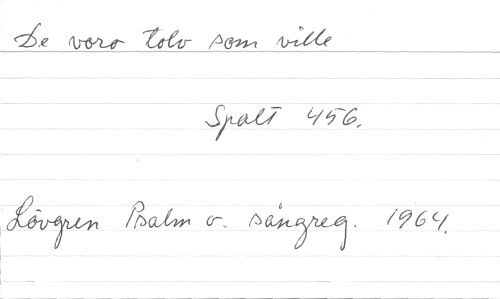 De voro tolv som ville
Spalt 456.
Lövgren Psalm o. sångreg. 1964.